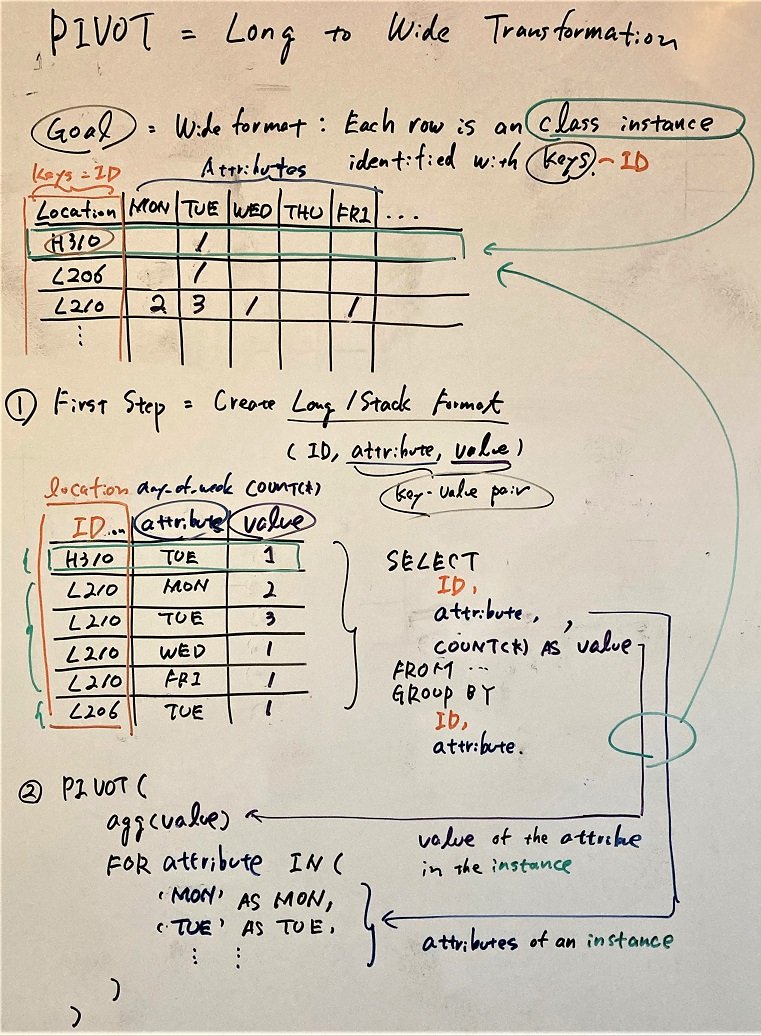 PIVOT = Long to Wide Transformation
Goal = Wide format : Each row is an class instance
identified with keys. - ID
keys = ID Attributes
Location MON TUE WED THU FRI ...
H310 1
L206 1
L210 2 3 1 1
① First Step = Create Long / Stack Format
( ID, attribute, value )
key-value pair
location day-of-week COUNT(*)
ID... attribute value
H310 TUE 1
L210 MON 2
L210 TUE 3
L210 WED 1
L210 FRI 1
L206 TUE 1
SELECT
ID,
attribute,,
COUNT(*) AS value
FROM ...
GROUP BY
ID,
attribute.
② PIVOT (
agg(value)
value of the attribue
in the instance
FOR attribute IN (
'MON' AS MON,
'TUE' AS TUE,
attributes of an instance
)
)